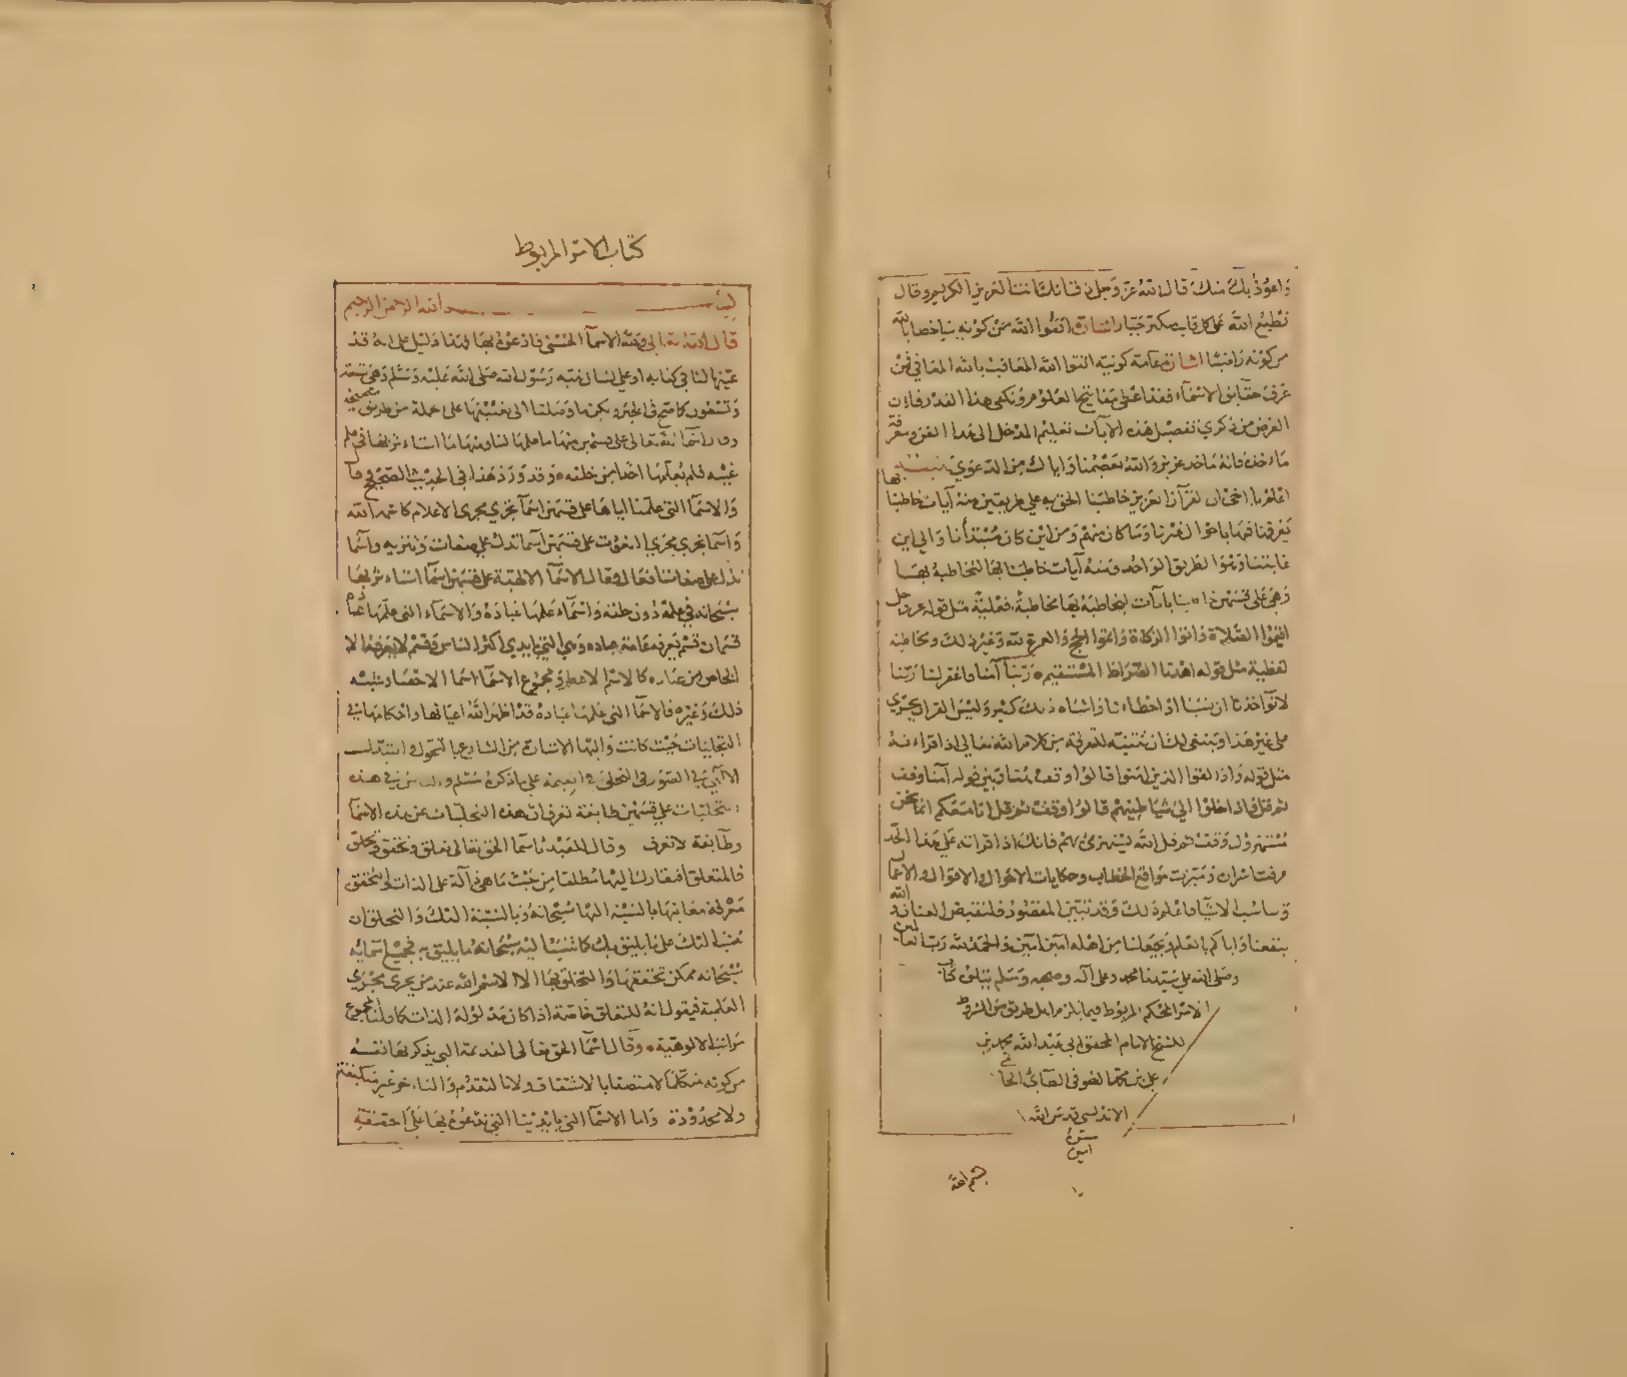 واعوذ بك منك قال الله عز وجل ذق انك انت العزيز الكريم وقال
يطبع الله على كل قلب متكبر جبار اشارة اتقوا الله من كونه
من كونه اشارة عامة كونية اتقوا الله المعاقب بالله المعافي فمن
عرف حقائق الاسماء فقد اعطي مفاتيح العلوم ونكفي هذا القدر فان
الغرض من ذكري تفصيل هذه الآيات تعليم المدخل الى هذا الفن ومعرفة
ماخذه فانه ماخذ عزيز والله يعصمنا واياك من الدعوى
اعلم يا اخي ان القرآن العزيز خاطبنا الحق به على طريقين منه آيات خاطبنا
يعرفنا فيها باحوال غيرنا وما كان منهم ومن اين كان مبتدأنا والى اين
غايتنا وهو الطريق الواحد ومنه آيات خاطبنا بها لنخاطبه بها
وهي على قسمين آيات لنخاطبه بها مخاطبة فعلية مثل قوله عز وجل
اقيموا الصلاة واتوا الزكاة واتموا الحج والعمرة لله وغير ذلك ومخاطبة
لفظية مثل قوله اهدنا الصراط المستقيم ربنا آمنا فاغفر لنا ربنا
لا تؤاخذنا ان نسينا او اخطأنا واشباه ذلك كثير وليس القران يحتوي
على غير هذا وينبغي لك ان تتنبه للتفرقة من كلام الله تعالى اذا قراءته
مثل قوله واذا لقوا الذين امنوا قالوا وقف قوله آمنا وقف
ثم قل واذا خلوا الى شياطينهم قالوا وقف ثم قل انا معكم انما نحن
مستهزؤن وقف ثم قل الله يستهزئ بهم فانك اذا قراته على هذا الحد
عرفت اسراره وتميزت مواقع الخطاب وحكايات الاحوال والاقوال والاعمال
وتناسب الاشيا فاعلم ذلك وقد تبين المقصود فلنقبض العنان والله
ينفعنا واياكم بالعلم ويجعلنا من اهله امين امين والحمد لله رب العالمين
وصلى الله على سيدنا محمد وعلى آله وصحبه وسلم
الامر المحكم المربوط فيما يلزم اهل طريق من الشروط
للشيخ الامام المحقق ابي عبد الله محمد بن
علي بن محمد الصوفي الطائي الحاتمي
الاندلسي قدس الله
سره
امين
بسم الله
كتاب الامر المربوط
بسم الله الرحمن الرحيم
قال الله تعالى ولله الاسماء الحسنى فادعوه بها فهذا دليل على انه قد
عينها لنا في كتابه او على لسان نبيه رسول الله صلى الله عليه وسلم وهي تسعة
وتسعون كما صح في الخبر ولكن ما وصلنا الى تعيينها على جملة من طريق صحيحة
اسماء الله تعالى على قسمين منها ما علمها لنا ومنها ما استاثر بها في علم
غيبه فلم يعلمها احدا من خلقه وقد ورد هذا في الحديث الصحيح
والاسما التي علمنا اياها على قسمين اسما تجري مجرى الاعلام كاسمه الله
واسما تجري مجرى النعوت على قسمين اسما تدل على صفات وتنزيه واسما
تدل على صفات افعال وقال الاسما الالهية على قسمين اسما استاثر بها
سبحانه في علمه دون خلقه واسماء علمها عباده والاسماء التي علمها عباده
قسمان قسم يعرفه عامة عباده وهي التي بايدي اكثر الناس وقسم لا يعرفه الا
الخاص من عباده كالاسم الاعظم ومجموع الاسما اسما الاحصاء
ذلك وغيره فالاسما التي علمها عباده قد اظهر الله اعيانها واحكامها في
التجليات حيث كانت واليها الاشارة من الشارع بالتحول والتبدل
الالهي في الصور في التجلي في القيمة على ما ذكره مسلم في هذه
التجليات على قسمين طائفة تعرف ان هذه التجليات عن هذه الاسما
وطائفة لا تعرف وقال للعبد باسما الحق تعالى تعلق وتحقق وتخلق
فالتعلق افتقارك اليها مطلقا من حيث ما هي دالة على الذات والتحقق
معرفة معانيها بالنسبة اليها سبحانه وبالنسبة اليك والتخلق ان
تنسب اليك على ما يليق بك كما تنسبها اليه سبحانه ما يليق به فجميع اسمائه
سبحانه ممكن تحققها والتخلق بها الا الاسم الله عند من يجريه مجرى
العلمية فيقول انه للتعلق خاصة اذا كان مدلوله الذات كما قلنا لمجموع
مراتب الالوهية وقال اسما الحق تعالى القديمة التي يذكر بها نفسه
من كونه متكلما لا تتصف بالاشتقاق ولا بالتقدم والتاخر غير متكيفة
ولا محدودة واما الاسما التي بايدينا التي ندعوه بها على الحقيقة